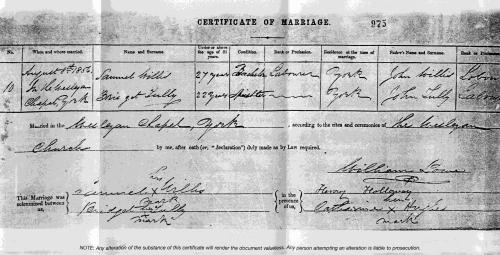 CERTIFICATE OF MARRIAGE. 975
No. When and where married. Name and Surname. Under or above the age of 21 years Condition. Rank or Profession. Residence at the time of marriage. Father's Name and Surname. Rank or Profession
10 August 1856 Samuel Willis 27 years Bachelor Labourer York John Willis
In Wesleyan
Chapel York Bridget Tully 22 years Spinster York John Tully
Married in the Wesleyan Chapel, York, according to the rites and ceremonies of The Wesleyan
Church by me, after oath (or, "declaration") duly made as by Law required.
William Lowe
This Marriage was solemnized between us, Samuel x Willis his mark
Bridget Tully mark
in the presence of us, Henry Holloway
Catharine x mark
NOTE: Any alteration of the substance of this certificate will render the document valueless. Any person attempting an alteration is liable to prosecution.